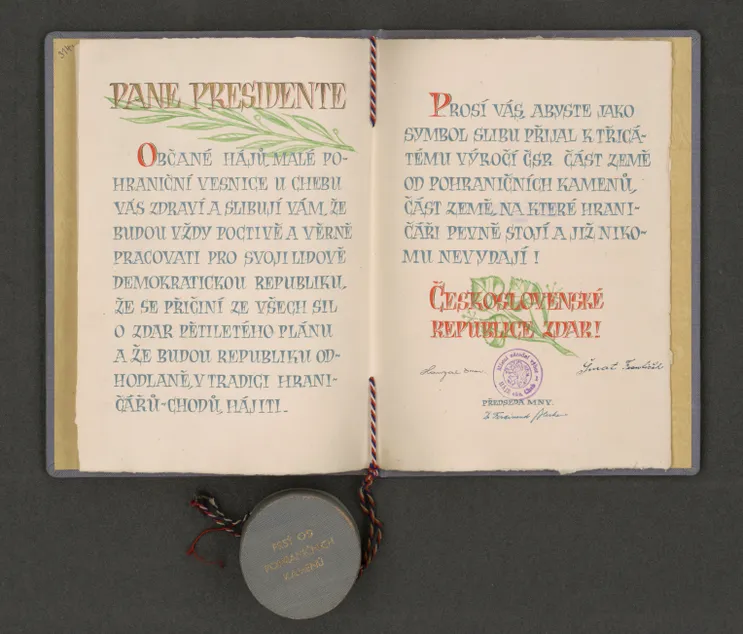 PANE PRESIDENTE
OBČANÉ HÁJŮ, MALÉ PO-
HRANIČNÍ VESNICE U CHEBU
VÁS ZDRAVÍ A SLIBUJÍ VÁM, ŽE
BUDOU VŽDY POCTIVĚ A VĚRNĚ
PRACOVATI PRO SVOJI LIDOVĚ
DEMOKRATICKOU REPUBLIKU,
ŽE SE PŘIČINÍ ZE VŠECH SIL
O ZDAR PĚTILETÉHO PLÁNU
A ŽE BUDOU REPUBLIKU OD-
HODLANĚ, V TRADICI HRANI-
ČÁŘŮ-CHODŮ, HÁJITI.
PROSÍ VÁS, ABYSTE JAKO
SYMBOL SLIBU PŘIJAL K TŘICÁ-
TÉMU VÝROČÍ ČSR ČÁST ZEMĚ
OD POHRANIČNÍCH KAMENŮ,
ČÁST ZEMĚ, NA KTERÉ HRANI-
ČÁŘI PEVNĚ STOJÍ A JIŽ NIKO-
MU NEVYDAJÍ!
ČESKOSLOVENSKÉ
REPUBLICE ZDAR!
PŘEDSEDA MNV.
PRSŤ OD
POHRANIČNÍCH
KAMENŮ